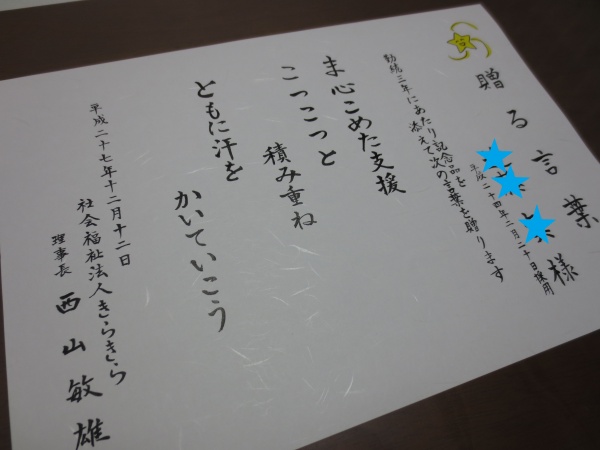 贈る言葉
様
平成二十四年二月二十日採用
勤続三年にあたり記念品を
添えて次の言葉を贈ります
ま心こめた支援
こつこつと
積み重ね
ともに汗を
かいていこう
平成二十七年十二月十二日
社会福祉法人きらきら
理事長 西山敏雄